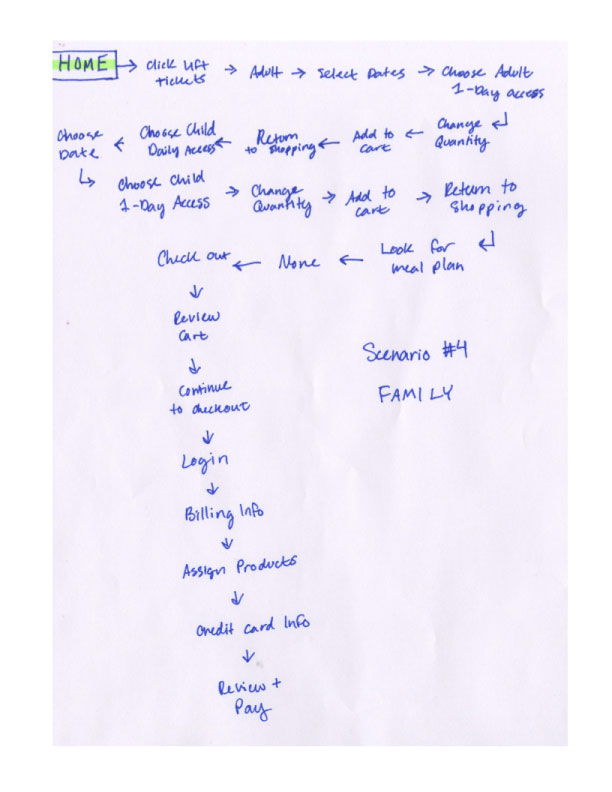 HOME → Click Lift tickets → Adult → Select Dates → Choose Adult 1-Day access
Change Quantity
Add to cart
Return to shopping
Choose Child Daily Access
Choose Date
Choose Child 1-Day Access → Change Quantity → Add to cart → Return to Shopping
Look for meal plan
None
Check out
Review Cart
Scenario #4
FAMILY
Continue to checkout
Login
Billing Info
Assign Products
Credit card Info
Review + Pay